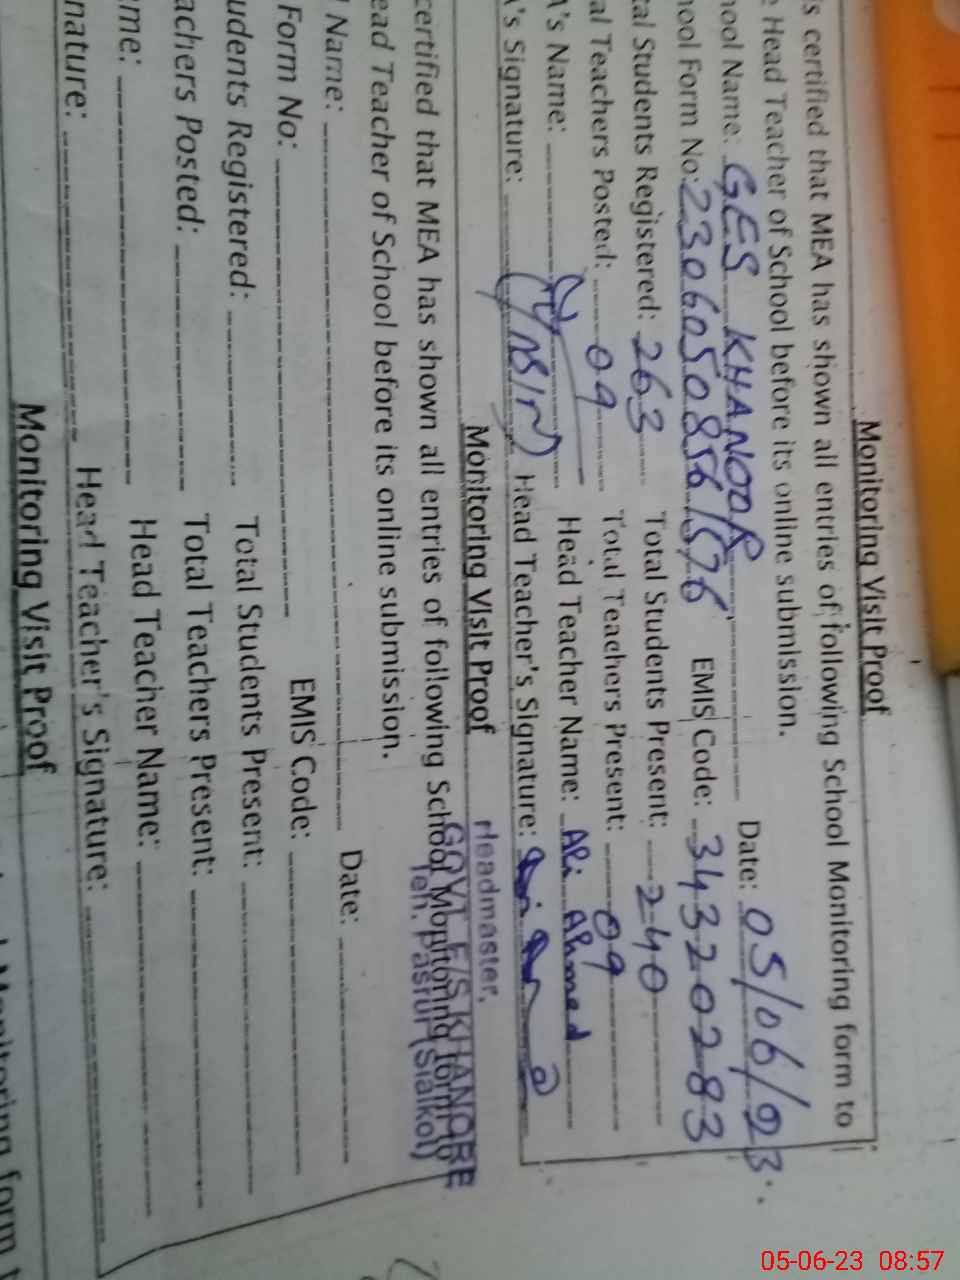 Monitoring Visit Proof
is certified that MEA has shown all entries of following School Monitoring form to
e Head Teacher of School before its online submission.
hool Name: GES KHANOOR Date: 05/06/23
hool Form No: EMIS Code: 34320283
tal Students Registered: 263 Total Students Present: 240
al Teachers Posted: 09 Total Teachers Present: 09
A's Name: Head Teacher Name: Ali Ahmed
A's Signature: Head Teacher's Signature:
Headmaster,
GOVT. E/S KHANORE
Teh. Pasrur (Sialkot)
Monitoring Visit Proof
certified that MEA has shown all entries of following School Monitoring form to
ead Teacher of School before its online submission.
l Name: Date:
Form No: EMIS Code:
udents Registered: Total Students Present:
achers Posted: Total Teachers Present:
me: Head Teacher Name:
nature: Head Teacher's Signature:
Monitoring Visit Proof
Monitoring form t
05-06-23 08:57